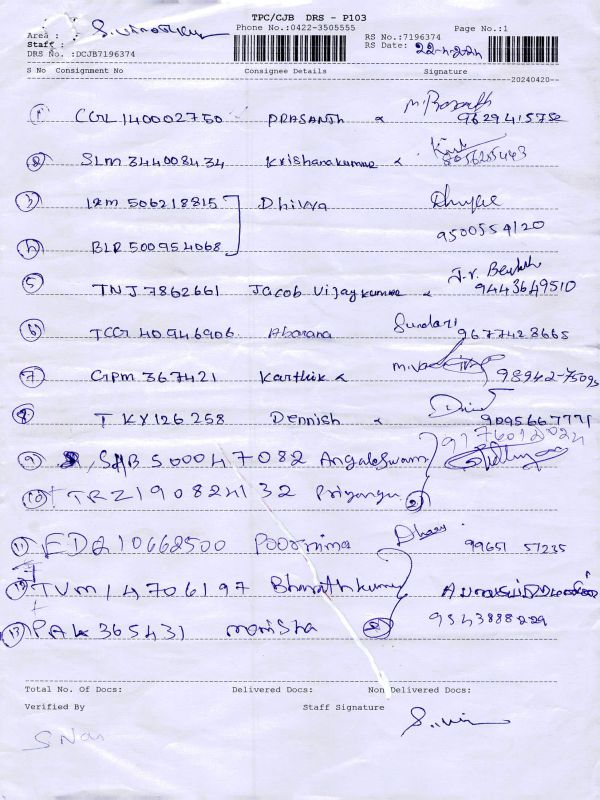 TPC/CJB DRS - P103
Phone No.:0422-3505555
Page No.:1
Area :
RS No.:7196374
Staff :
RS Date: 22-4-2024
DRS No. :DCJB7196374
S No Consignment No Consignee Details Signature
20240420
1 CGL140002750 PRASANTH 9629415752
2 SLM344008434 Krishanakumar 8056285443
3 506218815 Dhivya
4 BLR500954068 9500554120
5 TNJ7862661 Jacob Vijaykumar 9443649510
6 TCG40946906 Abarana Sundari 9677428665
7 GPM367421 Karthik 98942-75095
8 TKY126258 Dennish 9095667771
9 500047082 Angaleswari
10 TRZ190824132 Priyanga 2
11 EDQ10662500 Poornima 99651 57235
12 TVM14706197 Bharathkumar
13 PAK365431 monisha 9343888229
Total No. Of Docs: Delivered Docs: Non Delivered Docs:
Verified By Staff Signature